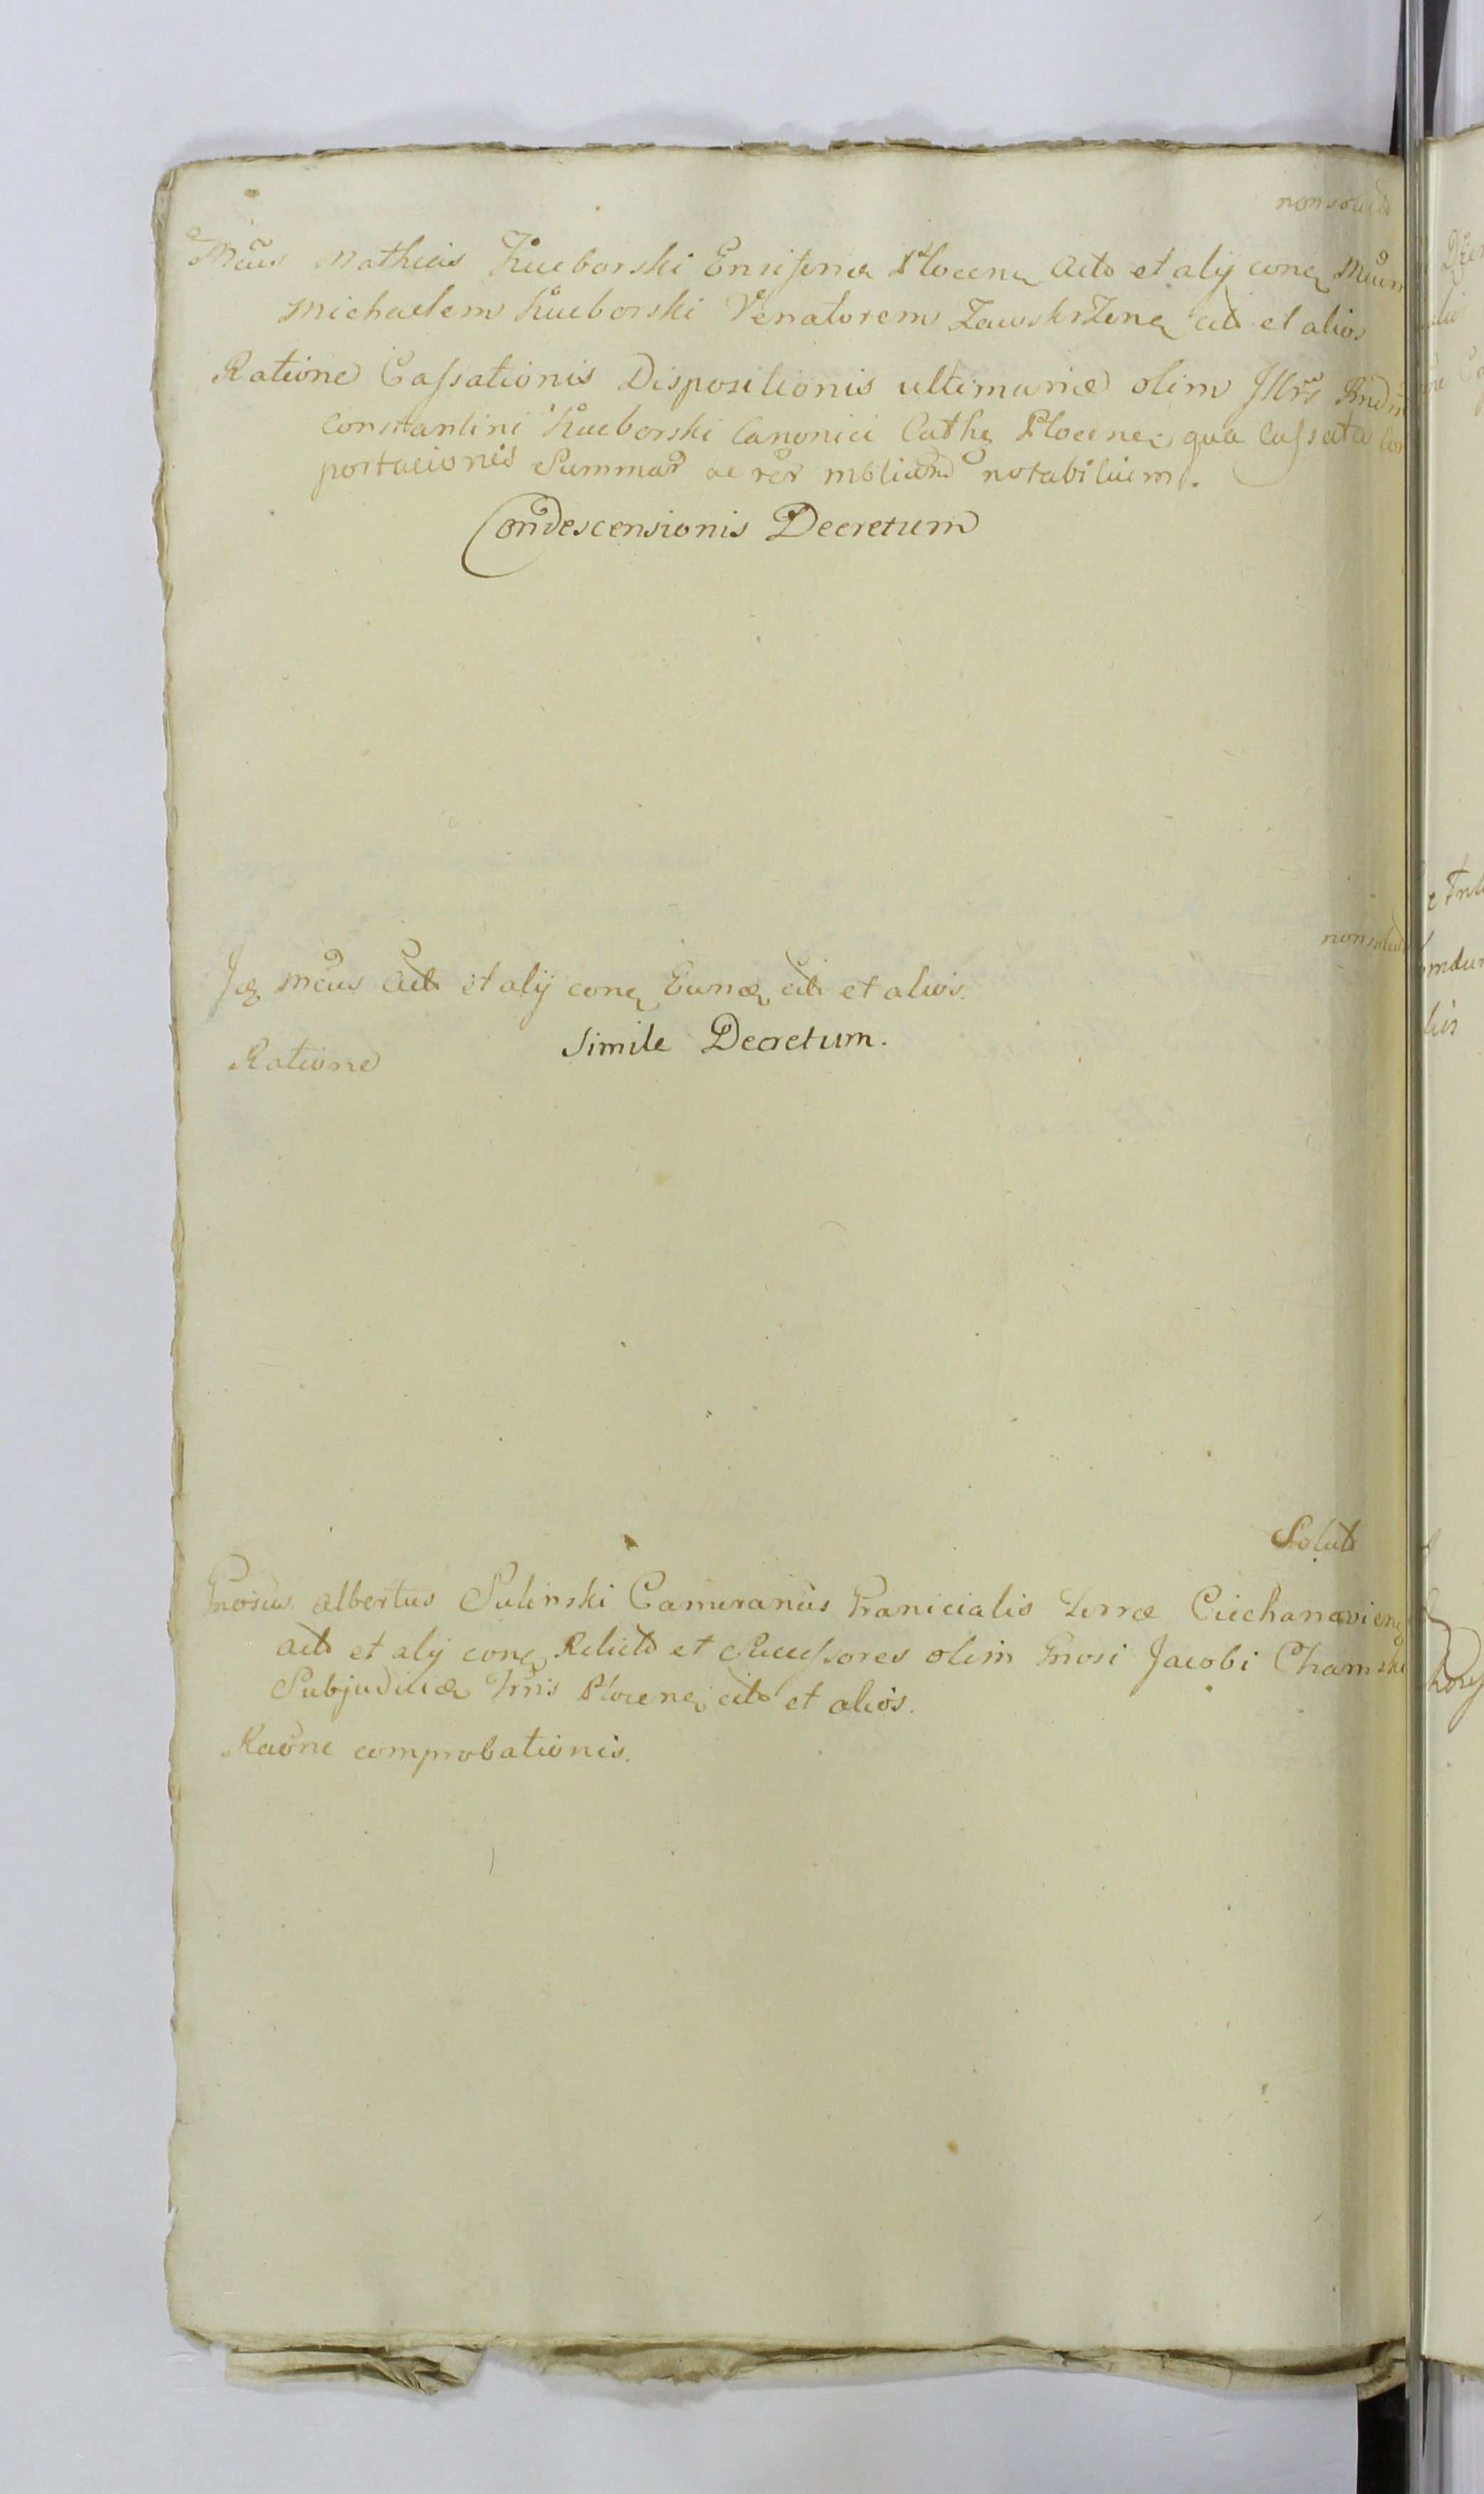 non solut
Mcus Mathias Kucborski Ensifer Plocen Act et alij con Mcum
Michaelem Kucborski Venatorem Zawskrzen cit et alios
Ratione Cassationis Dispositionis ultimariæ olim Illris Rndi
Constantini Kucborski Canonici Cath Plocen qua cassata
portationis Summar ac rer mblium notabilium.
Condescensionis Decretum
non solut
Mcus Act et alij con cit et alios.
Simile Decretum.
Ratione
Solut
Gnosus Albertus Sulinski Cameranus Granicialis Terræ Ciechanovien
act et alij con Relict et Successores olim Gnosi Jacobi Chamski
Subjudicis Trris Plocen cit et alios.
Raõne comprobationis.